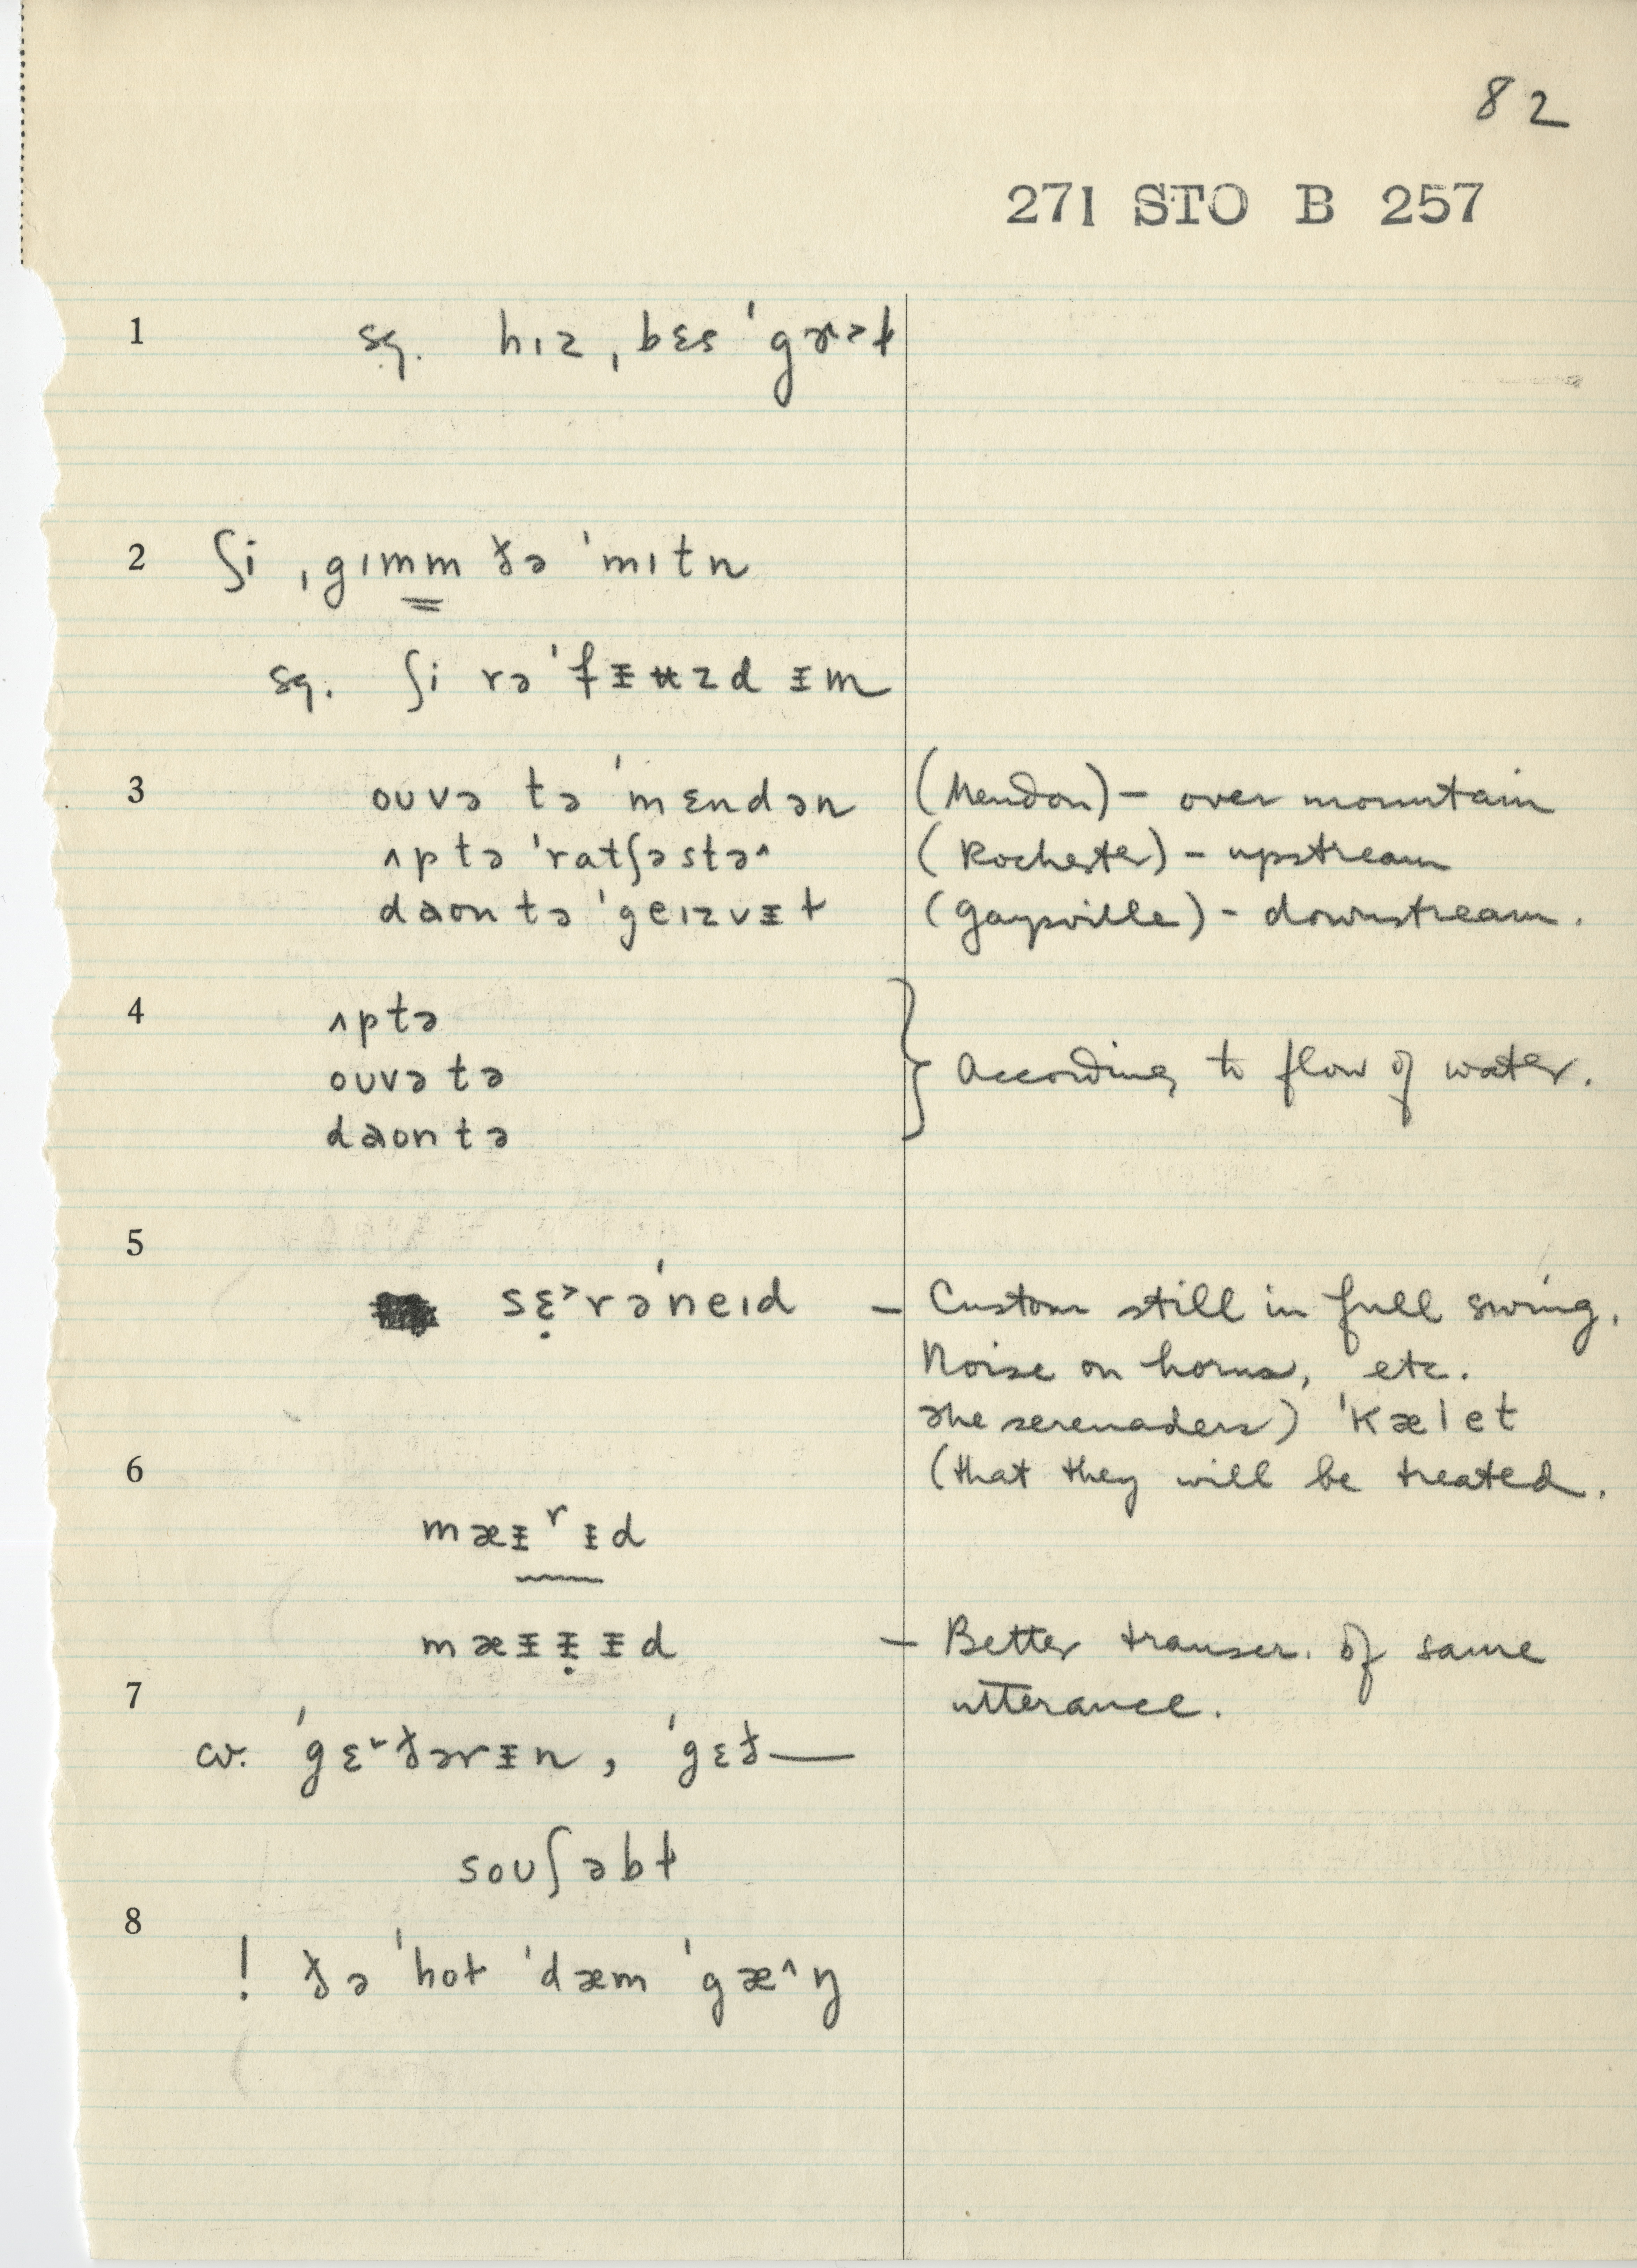 82
271 STO B 257
1 sg. hɪz ˌbɛs ˈgɝəɫ
2 ʃi ˌgɪmm ðə ˈmɪtn
sg. ʃi rəˈfɪʉzd ɪm
3 oʊvə tə ˈmɛndən (Mendon) – over mountain
ʌp tə ˈratʃəstə˄ (Rochester) – upstream
daʊn tə ˈgeɪzvɪɫ (Gaysville) – downstream.
4 ʌp tə
oʊvə tə } According to flow of water.
daʊn tə
5
sɛ̣˃rəˈneɪd – Custom still in full swing.
Noise on horns, etc.
The serenaders) ˈkælet
6 (that they will be treated.
mæɨʳɨd
mæɨɨ̣ɨd – Better transcr. of same
7 utterance.
cv. ˈgɛ˔ðərɨn, ˈgɛð—
soʊʃəbɫ
8
! ðə ˈhoɫ ˈdæm ˈgæ˄ŋ